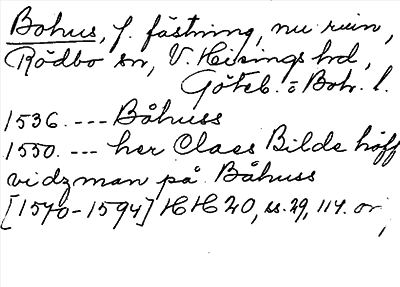 Bohus, f. fästning, nu ruin,
Rödbo sn, V. Hisings hd,
Göteb. o. Boh. l.
1536. --- Båhuss
1550. --- her Claes Bilde höff
vidzman på Båhuss
[1570-1594] HH 20, ss. 29, 114. or,